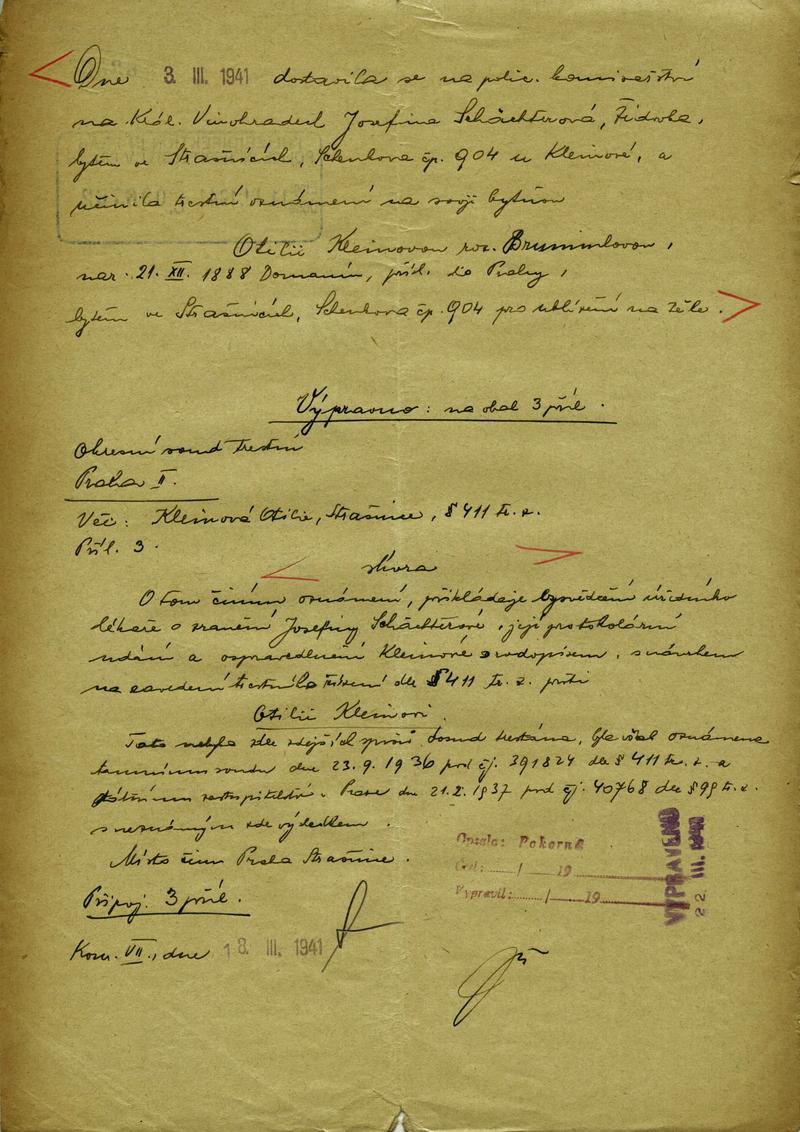 Dne 3. III. 1941 dostavila se na polic. komisařství
na Král. Vinohradech Josefina Schächterová, židovka,
bytem ve Strašnicích, Schenkova čp. 904 u Kleinové, a
učinila trestní oznámení na svoji bytnou
Otilii Kleinovou roz. Brummlovou,
nar. 21. XII. 1888 Domanín, přísl. do Prahy,
bytem ve Strašnicích, Schenkova čp. 904 pro ublížení na těle.
Výpravno: na obal 3 příl.
Okresní soud trestní
Praha II.
Věc: Kleinová Otilie, Strašnice, § 411 tr. z.
Příl. 3.
shora
O tom činím oznámení, přikládaje vysvědčení úředního
lékaře o zranění Josefiny Schächterové, její protokolární
udání a ospravedlnění Kleinové s rodopisem, s návrhem
na zavedení trestního řízení dle § 411 tr. z. proti
Otilii Kleinové.
Tato nebyla dle zdejších spisů soud. trestána, byla však oznámena
tamnímu soudu dne 23. 9. 1936 pod čj. 391824 dle § 411 tr. z. a
státnímu zastupitelství v Praze dne 21. 2. 1937 pod čj. 40768 dle § 99 tr. z.
s neznámým zde výsledkem.
Místo činu Praha Strašnice.
Opsala: Pokorná
Čtl: / 19
Vypravil: / 19
VYPRAVENO
22. III. 1941
Připoj. 3 příl.
Kom. VII., dne 18. III. 1941